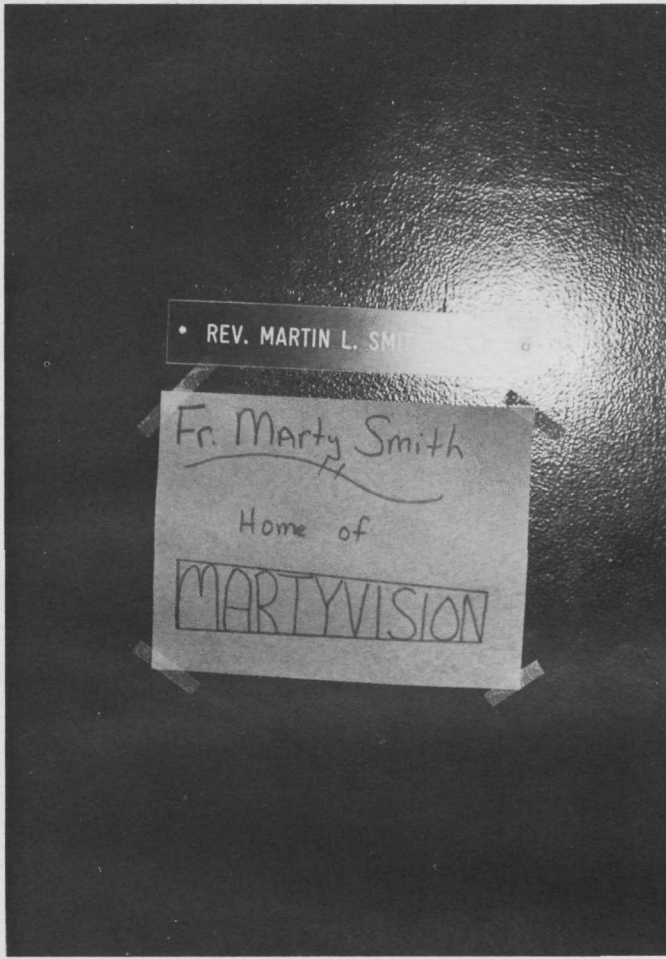 REV. MARTIN L. SMITH
Fr. Marty Smith
Home of
MARTYVISION